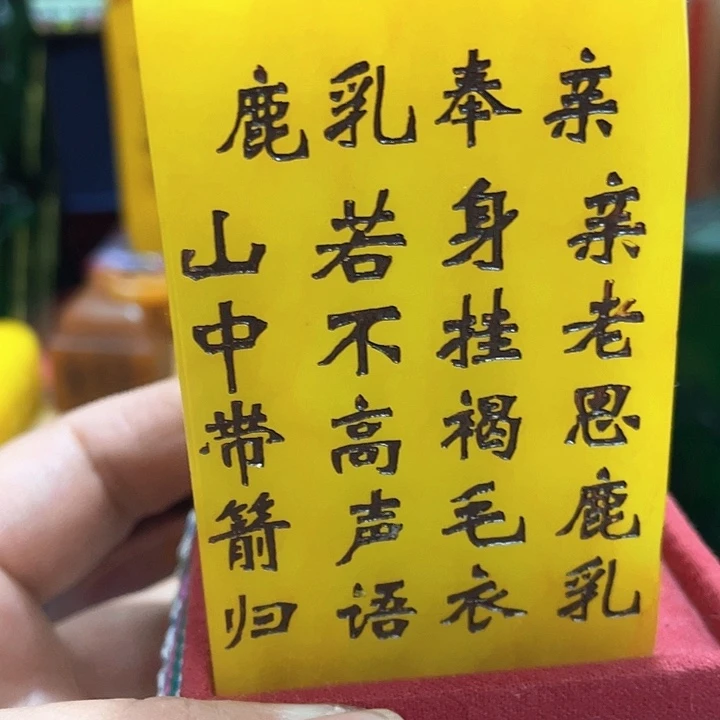 鹿乳奉亲
亲老思鹿乳
身挂褐毛衣
若不高声语
山中带箭归